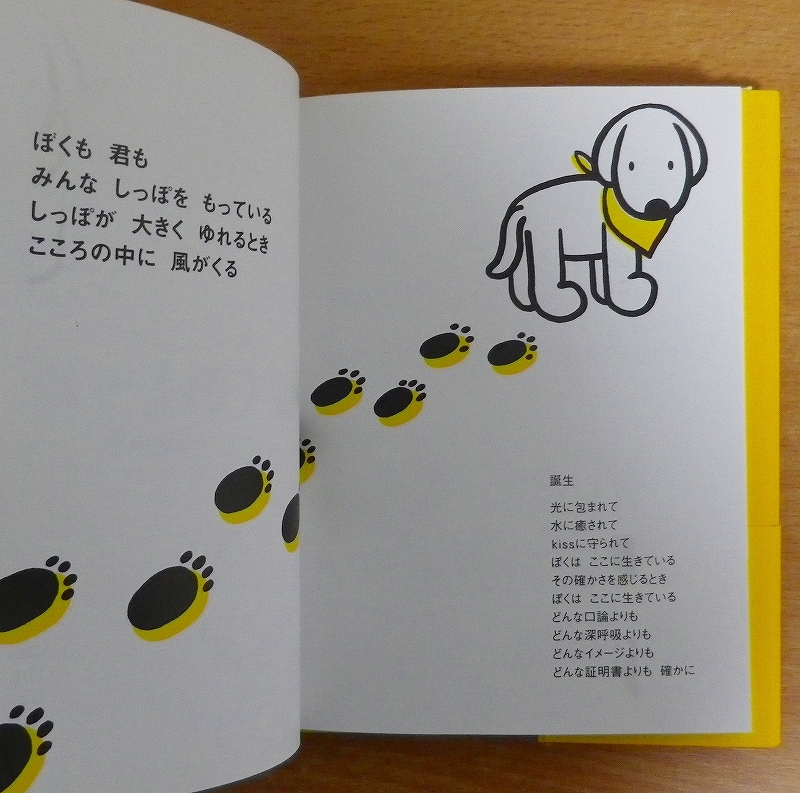 ぼくも 君も
みんな しっぽを もっている
しっぽが 大きく ゆれるとき
こころの中に 風がくる
誕生
光に包まれて
水に癒されて
kissに守られて
ぼくは ここに生きている
その確かさを感じるとき
ぼくは ここに生きている
どんな口論よりも
どんな深呼吸よりも
どんなイメージよりも
どんな証明書よりも 確かに